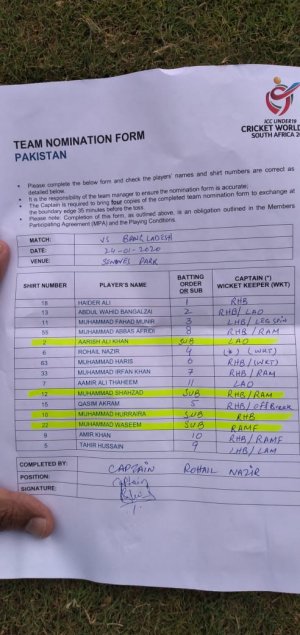 ICC UNDER19
CRICKET WORLD
SOUTH AFRICA 2
TEAM NOMINATION FORM
PAKISTAN
• Please complete the below form and check the players' names and shirt numbers are correct as
detailed below.
• It is the responsibility of the team manager to ensure the nomination form is accurate;
• The Captain is required to bring four copies of the completed team nomination form to exchange at
the boundary edge 35 minutes before the toss.
• Please note: Completion of this form, as outlined above, is an obligation outlined in the Members
Participating Agreement (MPA) and the Playing Conditions.
MATCH: VS BANGLADESH
DATE: 24-01-2020
VENUE: SENWES PARK
SHIRT NUMBER PLAYER'S NAME BATTING ORDER OR SUB CAPTAIN (*) WICKET KEEPER (WKT)
18 HAIDER ALI 1 RHB
13 ABDUL WAHID BANGALZAI 2 RHB/LAO
11 MUHAMMAD FAHAD MUNIR 3 LHB/LEG SPIN
55 MUHAMMAD ABBAS AFRIDI 8 RHB/RAM
2 AARISH ALI KHAN SUB LAO
6 ROHAIL NAZIR 4 (*) (WKT)
63 MUHAMMAD HARIS 6 RHB/(WKT)
33 MUHAMMAD IRFAN KHAN 7 RHB/RAM
7 AAMIR ALI THAHEEM 11 LAO
12 MUHAMMAD SHAHZAD SUB RHB/RAM
15 QASIM AKRAM 5 RHB/Off Break
10 MUHAMMAD HURRAIRA SUB RHB
22 MUHAMMAD WASEEM SUB RAMF
9 AMIR KHAN 10 RHB/RAMF
5 TAHIR HUSSAIN 9 LHB/LAM
COMPLETED BY: CAPTAIN ROHAIL NAZIR
POSITION: Captain
SIGNATURE: